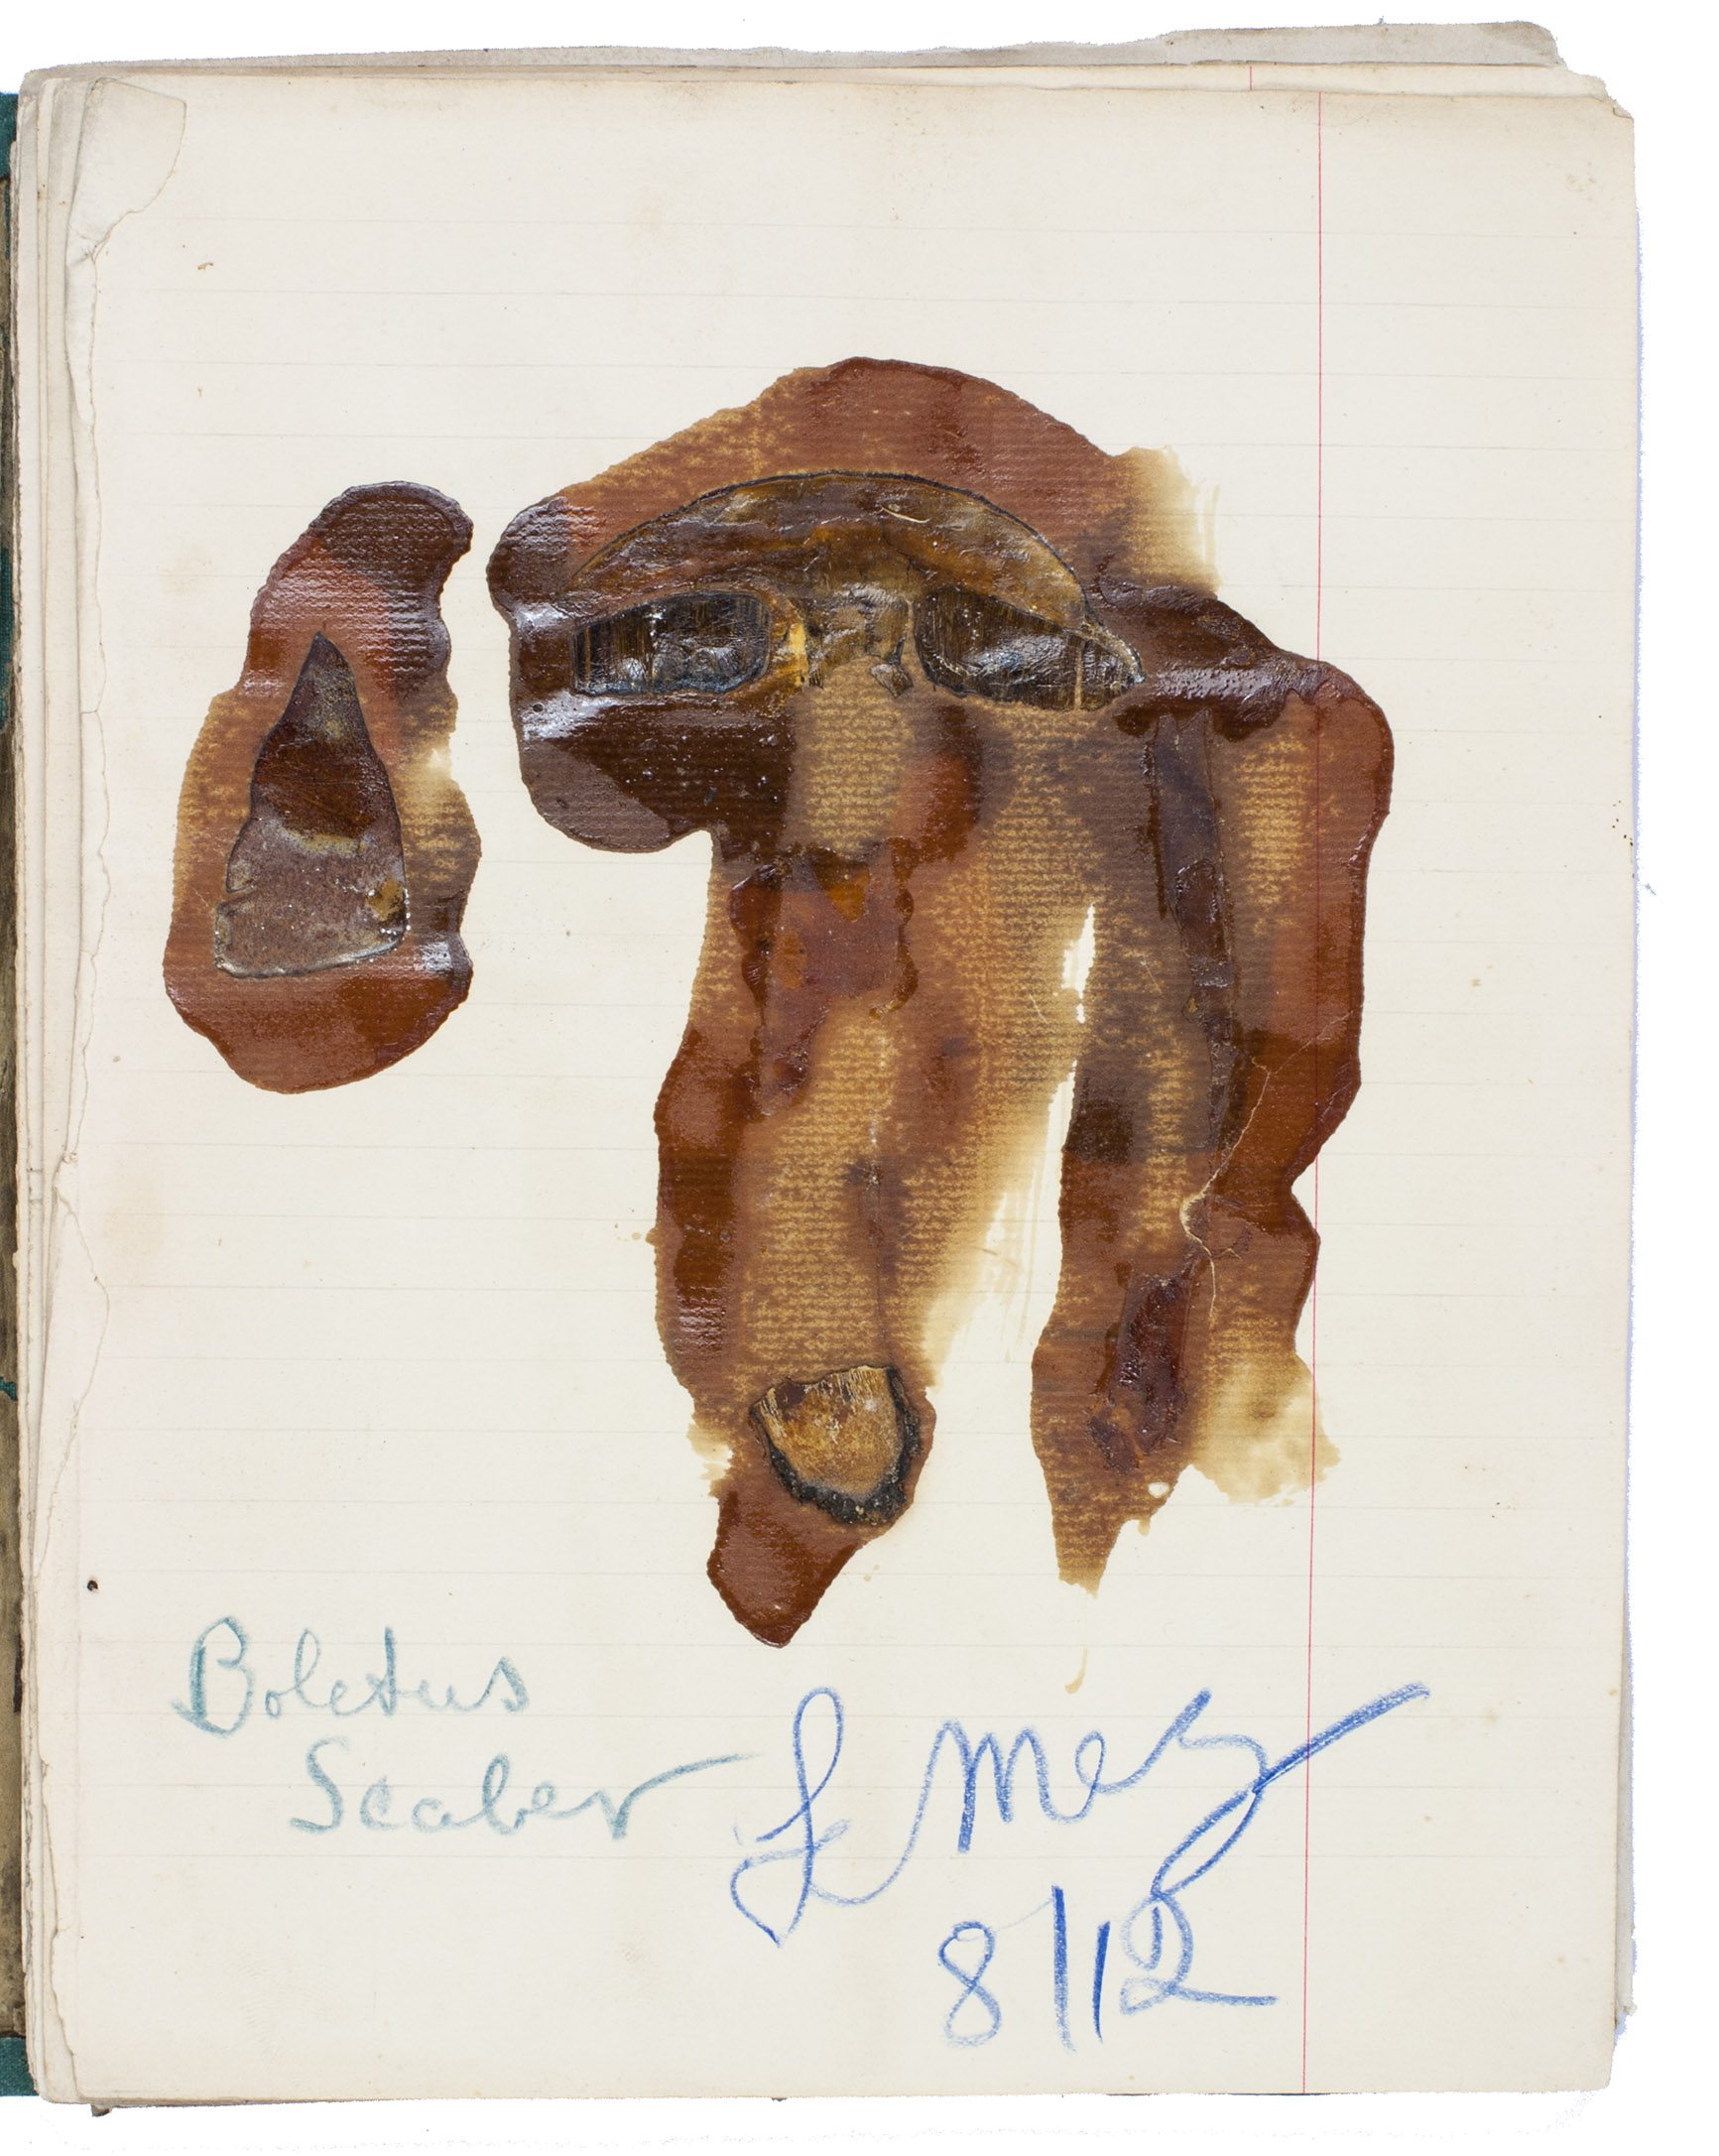 Boletus
Scaber
8/12